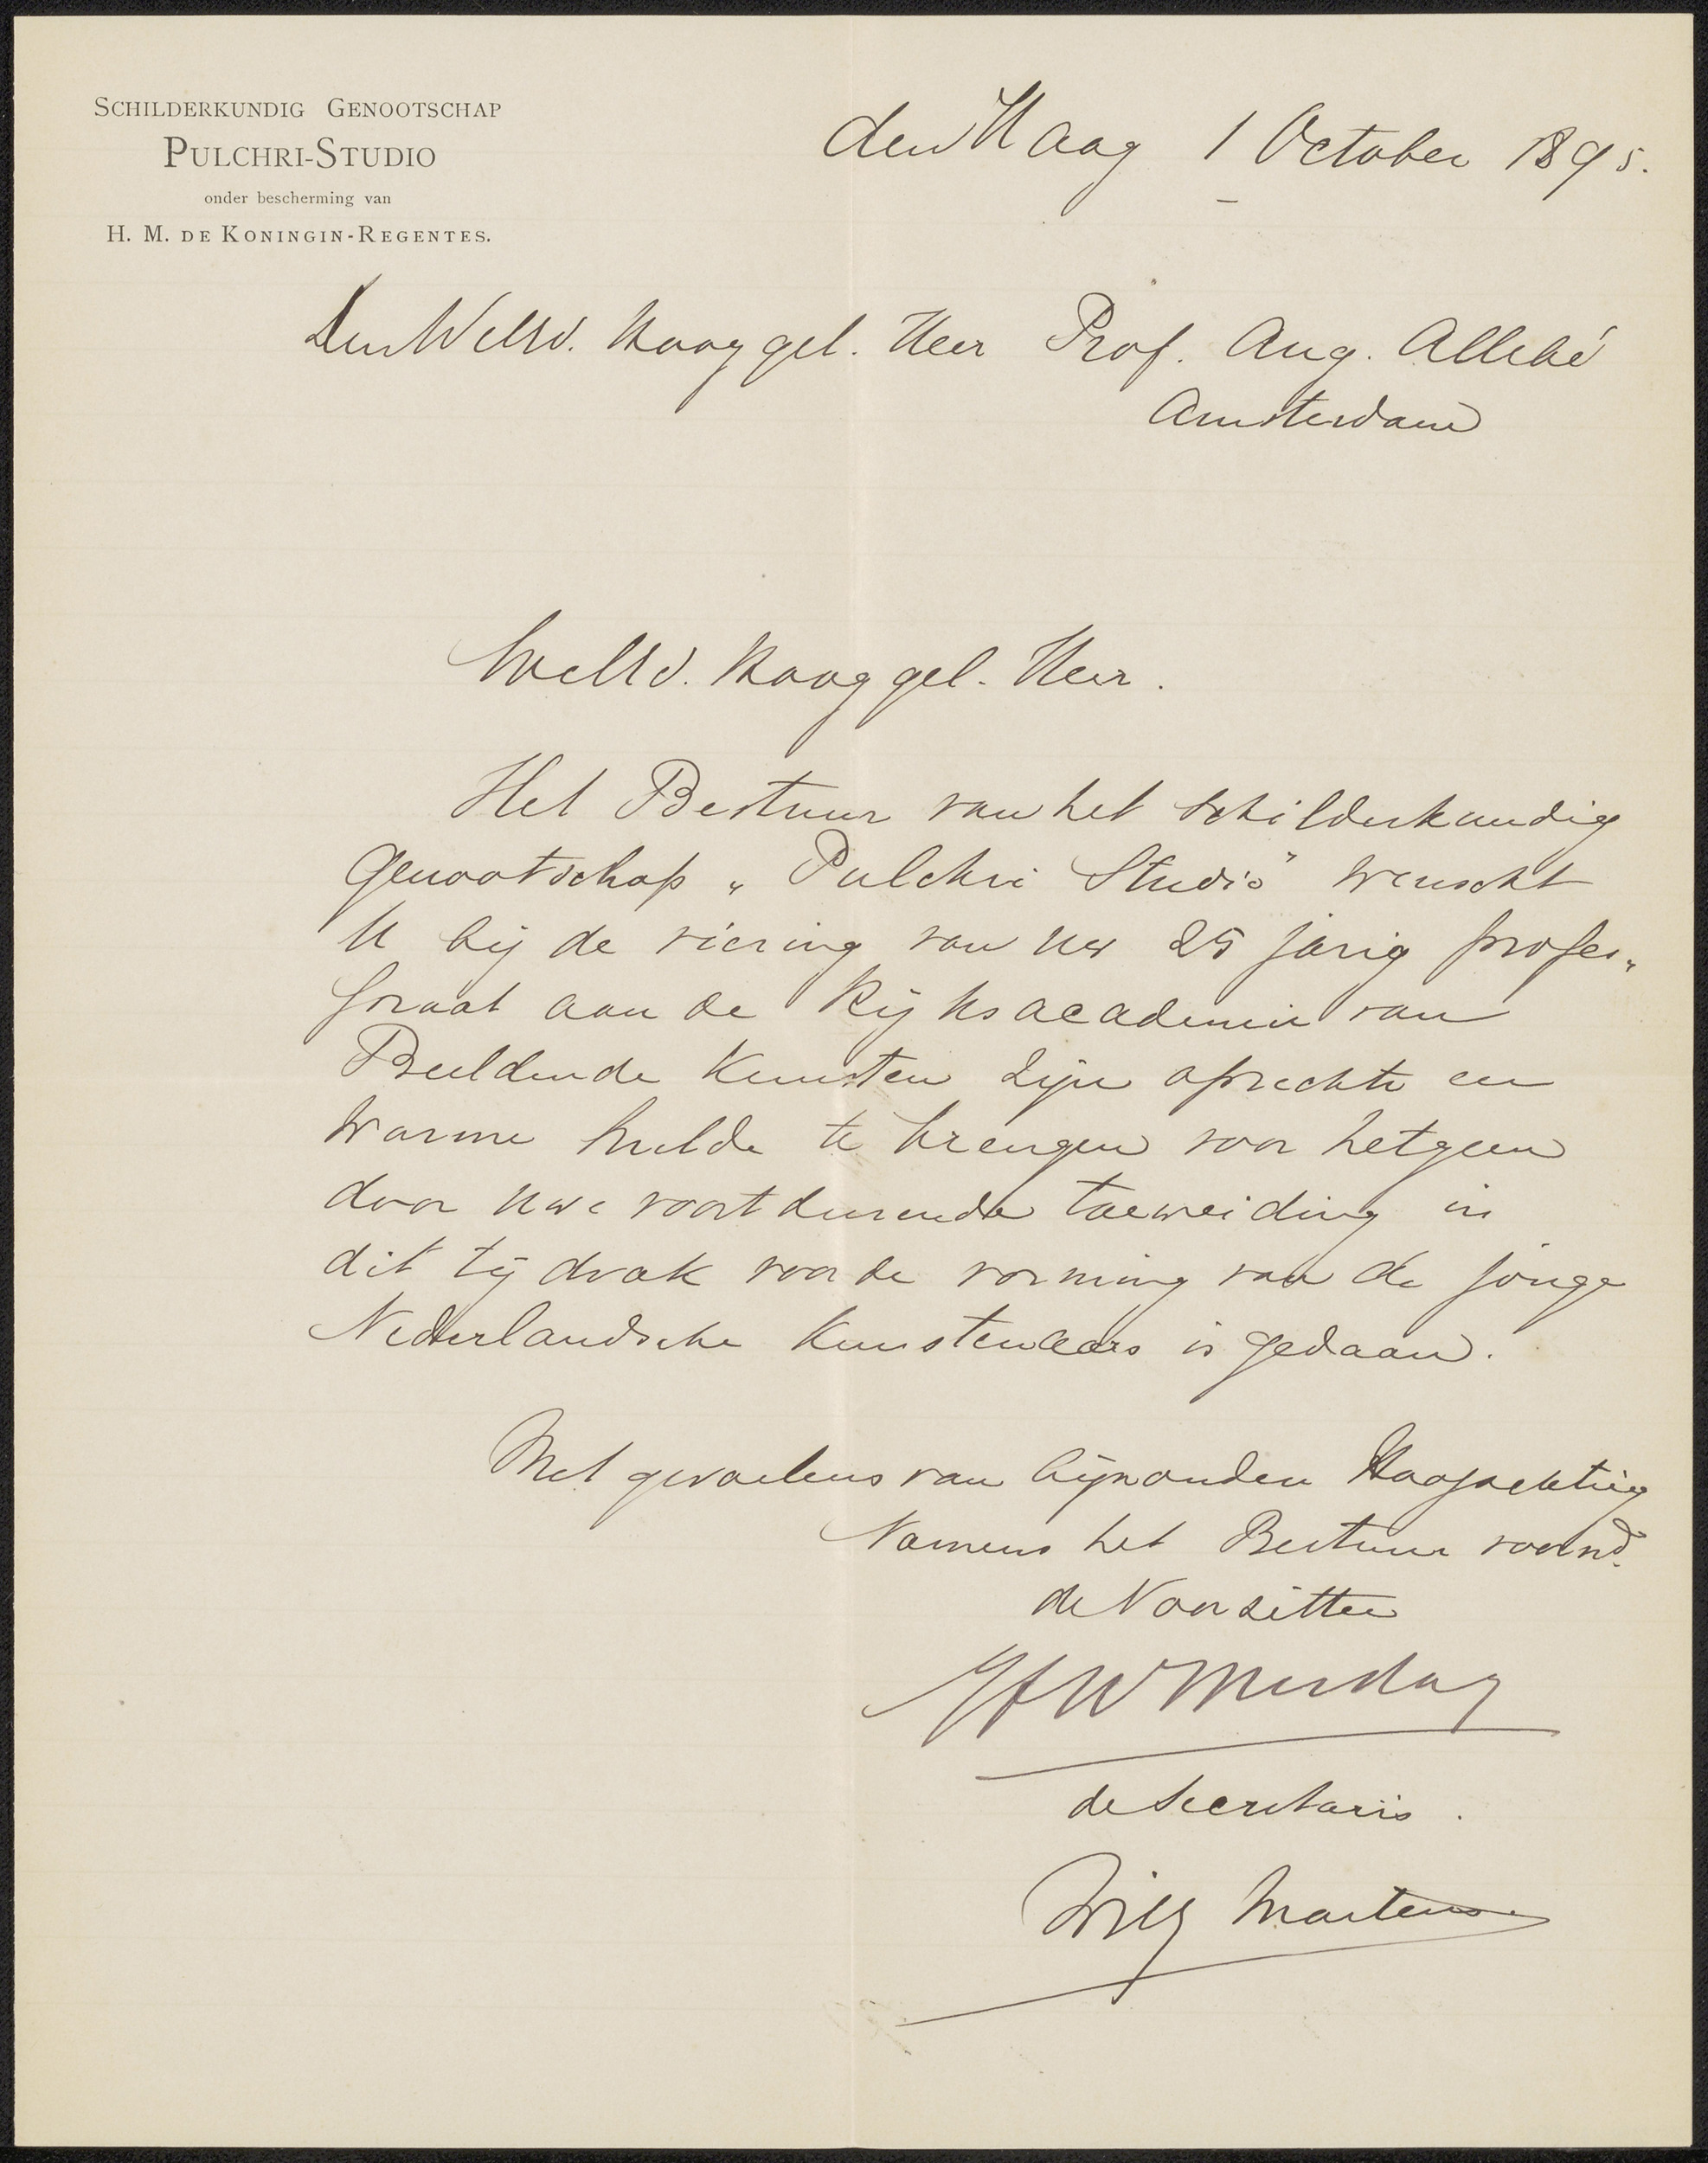 SCHILDERKUNDIG GENOOTSCHAP
PULCHRI-STUDIO
onder bescherming van
H. M. DE KONINGIN-REGENTES.
den Haag 1 October 1895.
Den WelEd. Hooggel. Heer Prof. Aug. Allebé
Amsterdam
WelEd. Hooggel. Heer.
Het Bestuur van het Schilderkundig
Genootschap „Pulchri Studio" wenscht
U bij de viering van uw 25 jarig profes„
soraat aan de Rijksacademie van
Beeldende Kunsten zijn oprechte en
warme hulde te brengen voor hetgeen
door uwe voortdurende toeweiding in
dit tijdvak voor de vorming van de jonge
Nederlandsche Kunstenaars is gedaan.
Met gevoelens van bijzondere Hoogachting
Namens het Bestuur voornd.
de Voorzitter
HW Mesdag
de Secretaris.
Willy Martens.